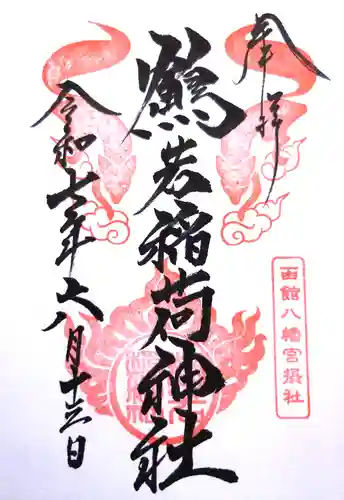 奉拝
鶴若稲荷神社
令和七年六月十三日
函館八幡宮摂社